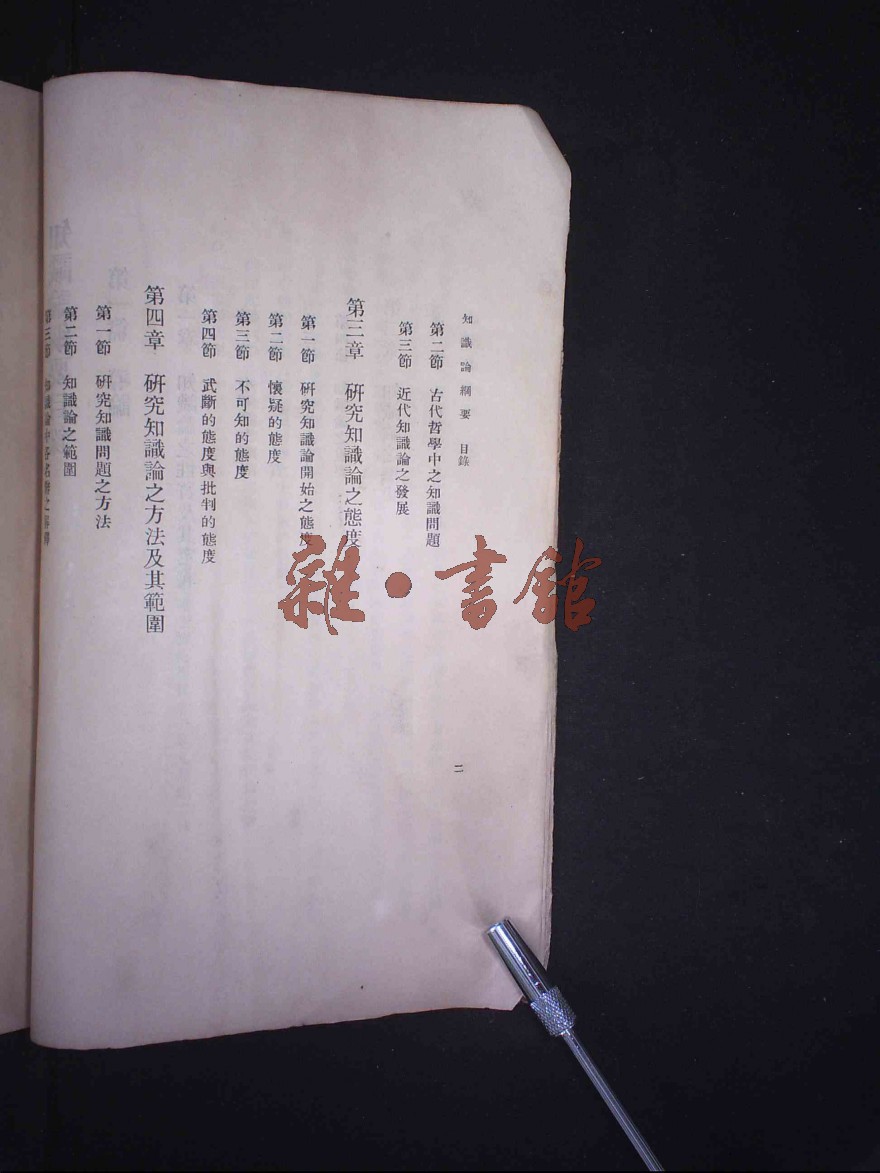 知識論綱要 目錄
第二節 古代哲學中之知識問題
第三節 近代知識論之發展
第三章 研究知識論之態度
第一節 研究知識論開始之態度
第二節 懷疑的態度
第三節 不可知的態度
第四節 武斷的態度與批判的態度
第四章 研究知識論之方法及其範圍
第一節 研究知識問題之方法
第二節 知識論之範圍
第三節 知識論中各名
二
雜·書館